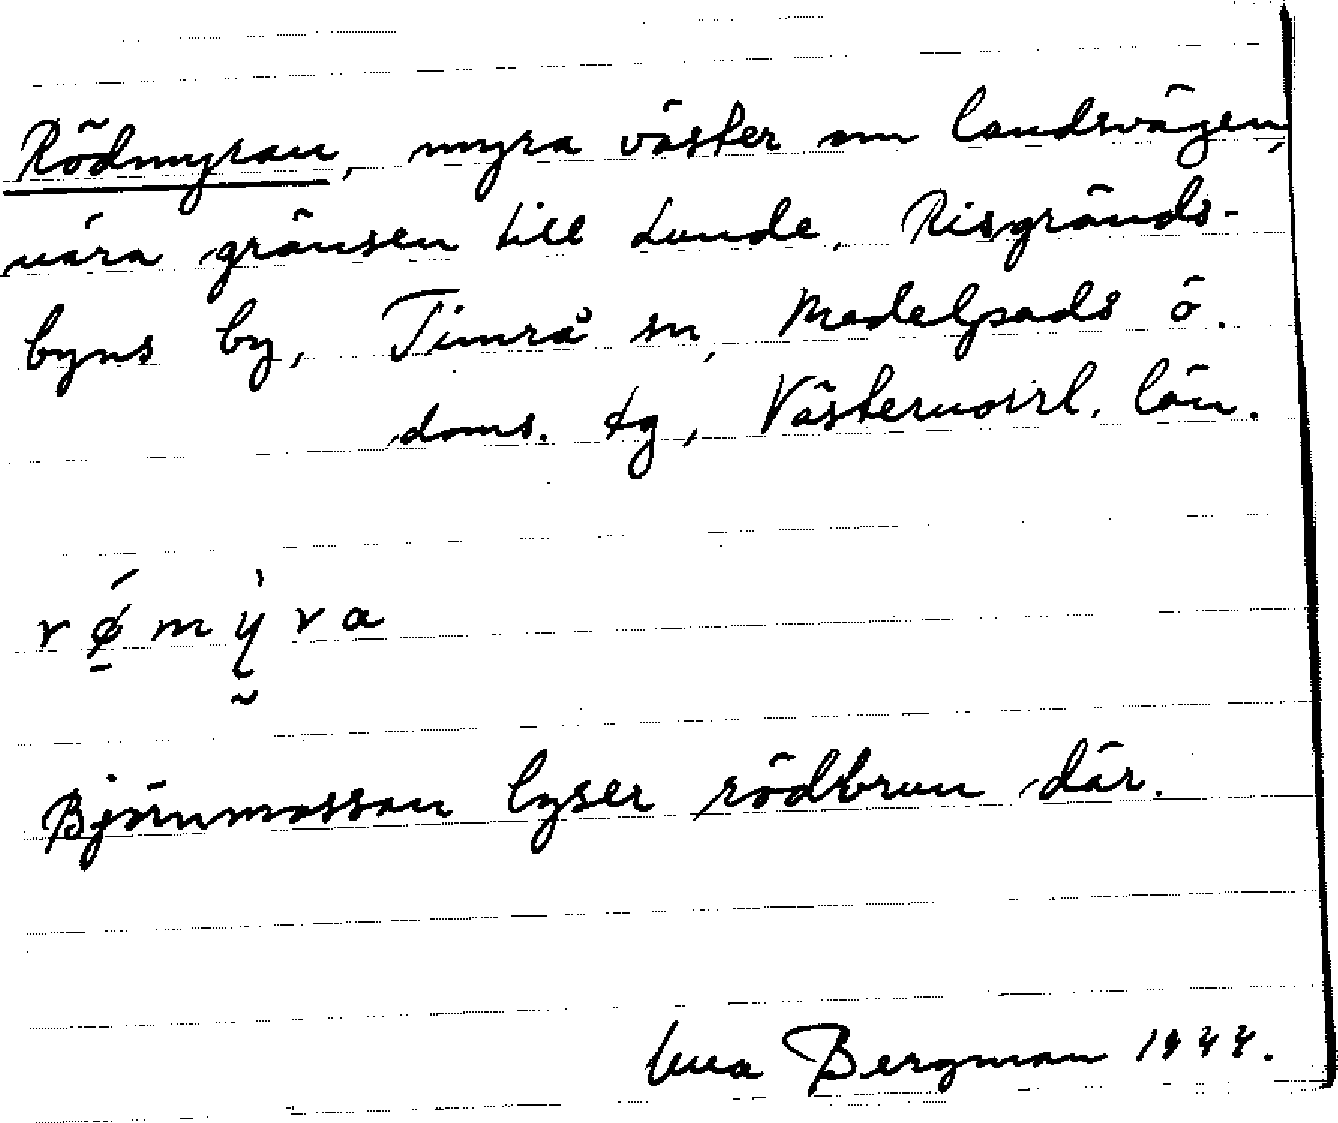 Rödmyran, myra väster om landsvägen,
nära gränsen till Lunde, Risgränds-
byns by, Timrå sn, Medelpads ö.
doms. tg, Västernorrl. län.
Björnmossan lyser rödbrun där.
Bergman 1944.